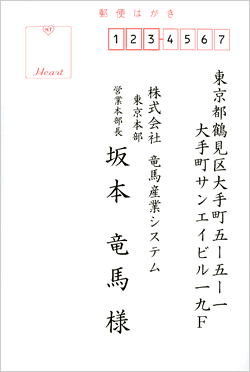 郵便はがき
123-4567
Heart
東京都鶴見区大手町五ー五ー一
大手町サンエイビル一九F
株式会社 竜馬産業システム
東京本部
営業本部長
坂本 竜馬 様